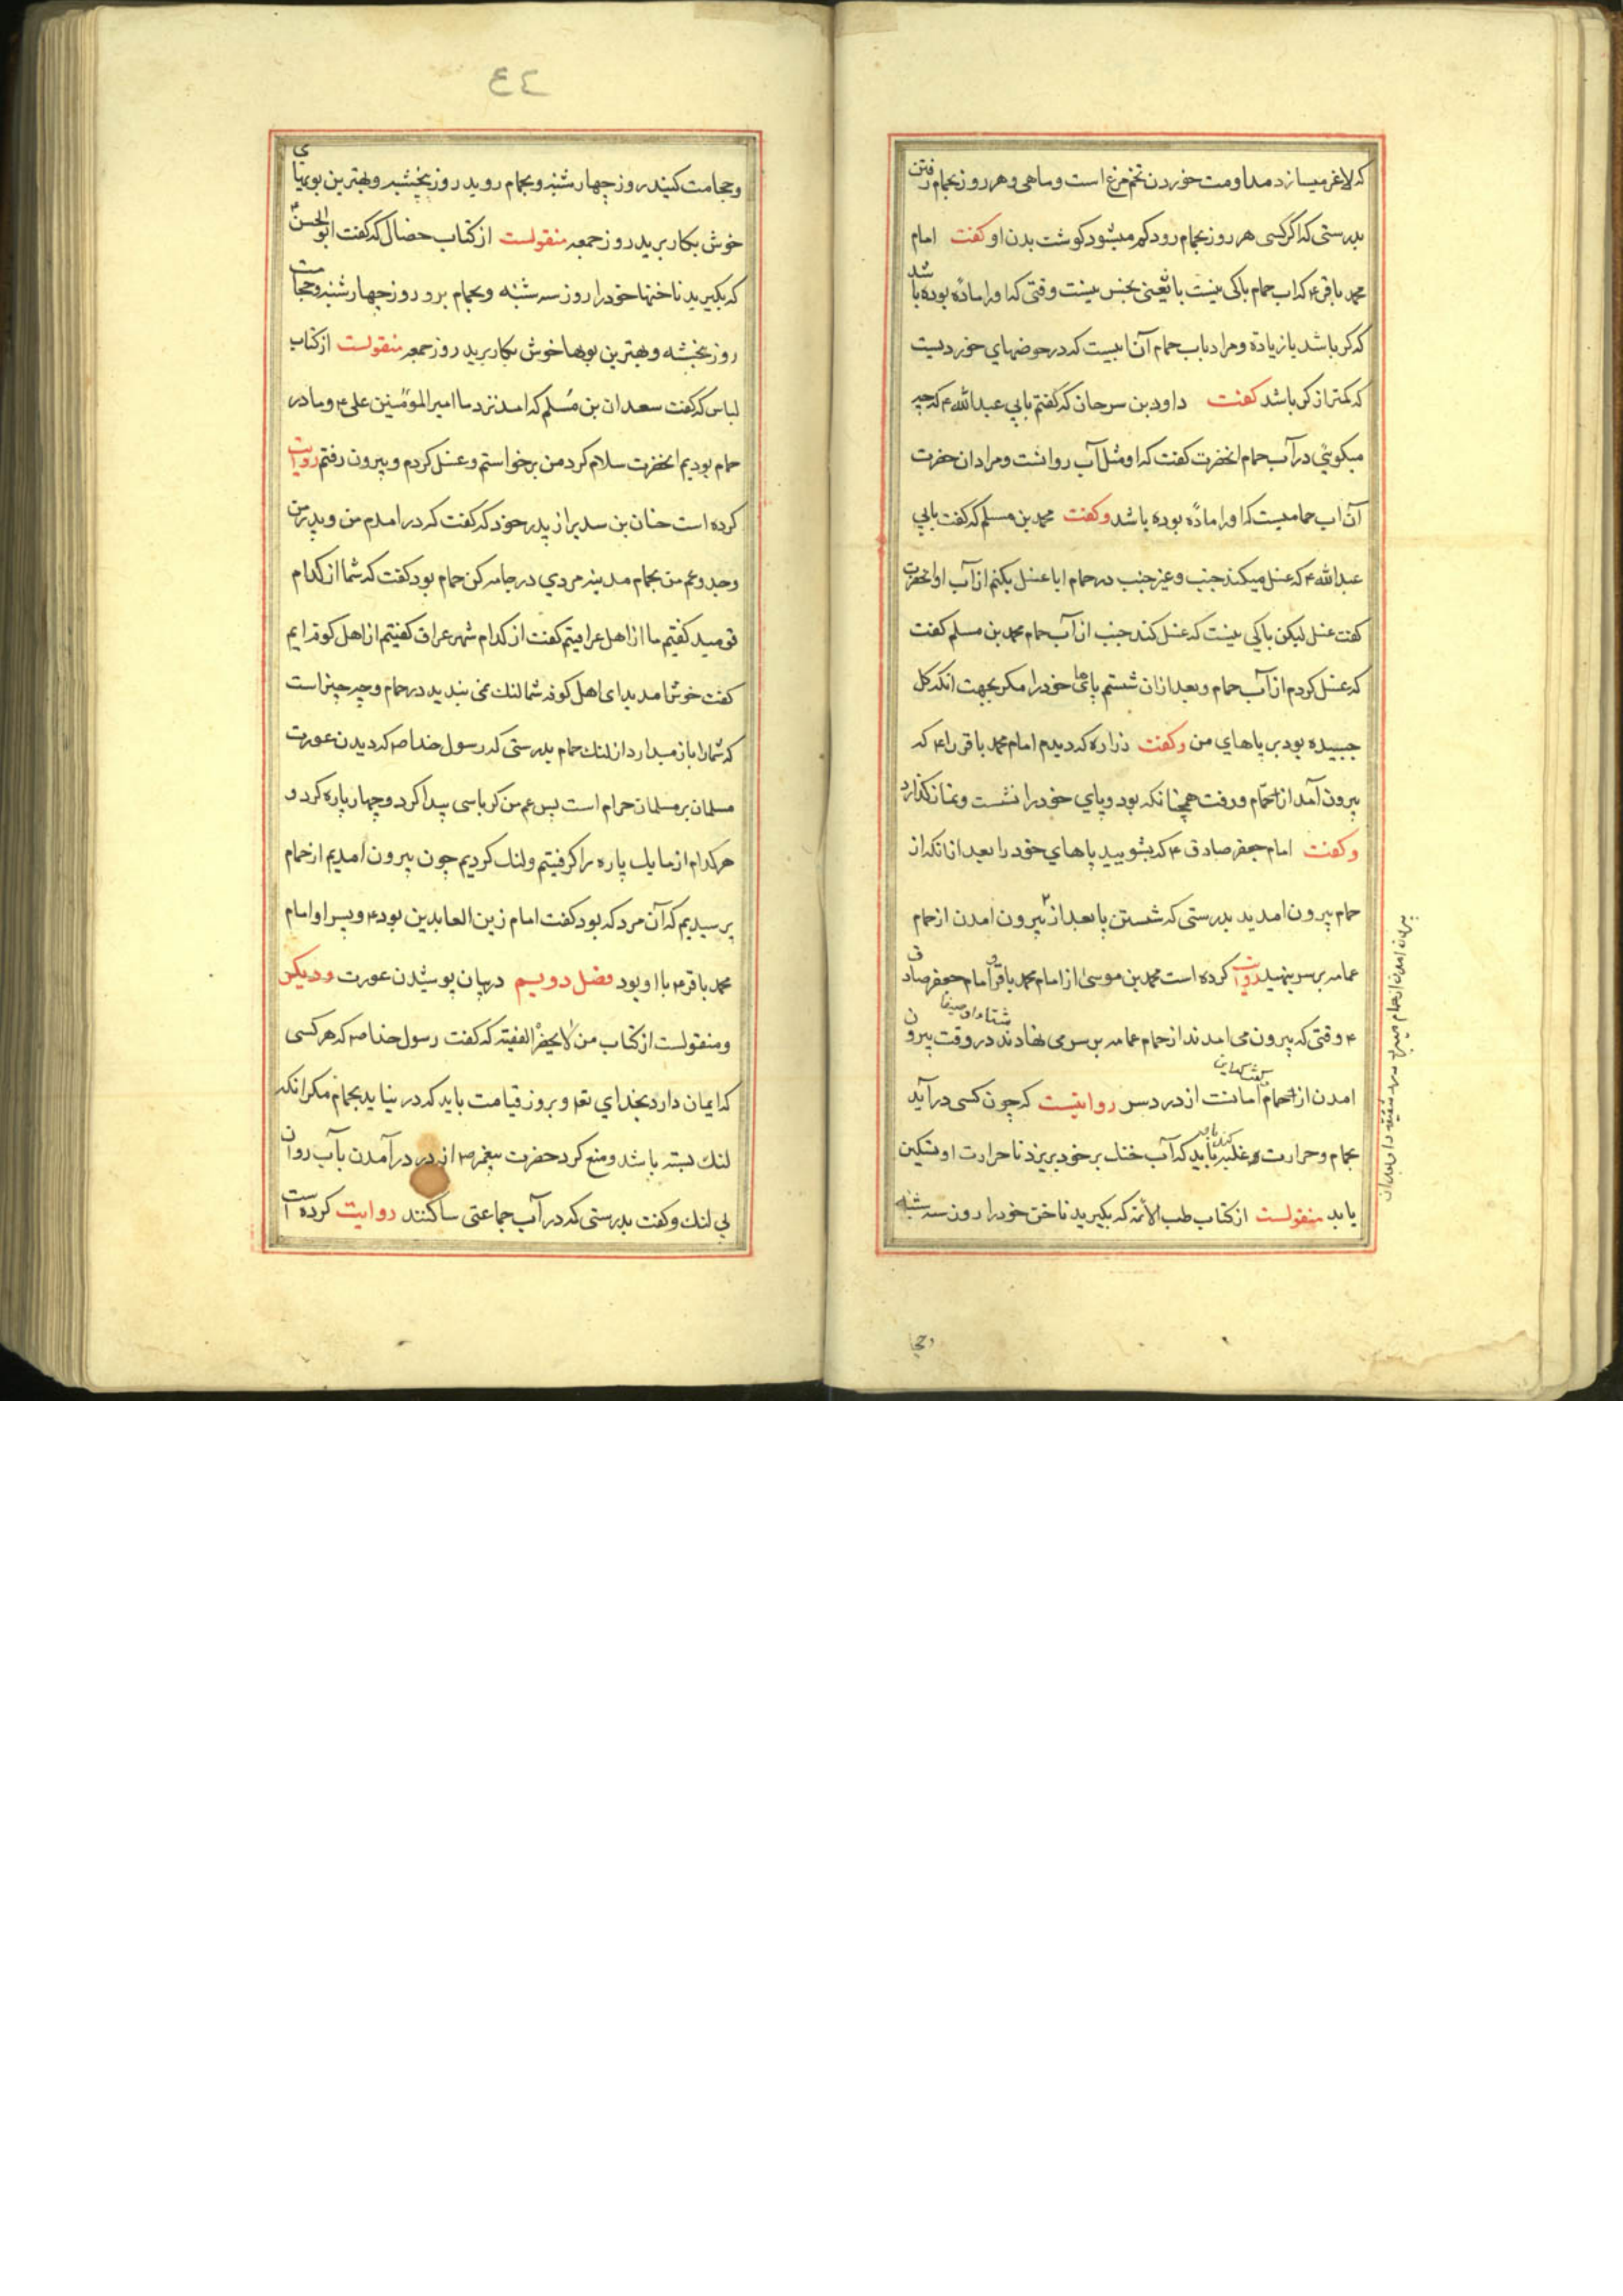 که لاغر میسازد مداومت خوردن تخم مرغ است و ماهی و هر روز بحمام رفتن
بدرستی که اگر کسی هر روز بحمام رود کم میشود کوشت بدن او کفت امام
محمد باقر ۴ که اب حمام باکی نیست باو یعنی نجس نیست وقتی که او را مادّه بوده باشد
که کر باشد یا زیاده و مراد باب حمام آن ابیست که در حوضهاي خوردیست
که کمتر از کر باشد کفت داود بن سرحان که کفتم بابي عبدالله ۴ که چه
میکوئي در آب حمام انحضرت کفت که او مثل آب روانست و مراد ان حضرت
آن اب حمامیست که او را مادّه بوده باشد وکفت محمد بن مسلم که کفت بابي
عبدالله ۴ که غسل میکند جنب و غیر جنب در حمام ایا غسل بکنم از آب او انحضرت
کفت غسل لیکن باکی نیست که غسل کند جنب از آب حمام محمد بن مسلم کفت
که غسل کردم از آب حمام و بعد ازان شستم پاي‌ها خود را مکر بجهت انکه کل
چسبیده بود بر پاهاي من وکفت زراره که دیدم امام محمد باقر را ۴ که
بیرون آمد از حمّام و رفت همچنانکه بود و پاي خود را نشست و نماز کذارد
وکفت امام جعفر صادق ۴ که بشویید پاهاي خود را بعد از انکه از
حمام بیرون امدید بدرستی که شستن پا بعد از بیرون امدن از حمام
بیرون امدن از حمام میبرد درد شقیقه را و بعد از ان
عمامه بر سر بنهید روایت کرده است محمد بن موسی از امام محمد باقر و امام جعفر صادق
۴ وقتی که بیرون می امدند از حمام عمامه بر سر می نهادند شتا و صیفا در وقت بیرون
امدن از حمام و میکفتند که این امانت از درد سر روایتست که چون کسی در آید
بحمام و حرارت غلبه کند باید که آب خنک بر خود بریزد تا حرارت او تسکین
یابد منقولست از کتاب طب الأئمه که بکیرید ناخن خود را روز سه شنبه
وحجا
٤٤
وحجامت کنید روز چهار شنبه و بحمام روید روز پنجشنبه و بهترین بویهای
خوش بکار برید روز جمعه منقولست از کتاب خصال که کفت ابو الحسن ۴
که بکیرید ناخنها خود را روز سه شنبه و بحمام برو روز چهار شنبه و حجامت
روز پنجشنبه و بهترین بویها خوش بکار برید روز جمعه منقولست از کتاب
لباس که کفت سعدان بن مُسلم که امد نزد ما امیر المؤمنین علی ۴ و ما در
حمام بودیم انحضرت سلام کرد من برخواستم و غسل کردم و بیرون رفتم روایت
کرده است حنان بن سدیر از پدر خود که کفت که در امدم من و پدر من
وجد و عم من بحمام مدینه مردي در جامه کن حمام بود کفت که شما از کدام
قومید کفتیم ما از اهل عراقیتم کفت از کدام شهر عراق کفتیم از اهل کوفه ایم
کفت خوش امدید ای اهل کوفه شما لنك نمی بندید در حمام و چه چیز است
که شما را باز میدارد از لنك حمام بدرستی که رسول خدا صم که دیدن عورت
مسلمان بر مسلمان حرام است پس عم من کرباسی پیدا کرد و چهار پاره کرد و
هر کدام از ما یك پاره را کرفتیم و لنك کردیم چون بیرون امدیم از حمام
پرسیدیم که آن مرد که بود کفت امام زین العابدین بود ۴ و پسر او امام
محمد باقر ۴ با او بود فصل دویم در بیان پوشیدن عورت و دیکر
ومنقولست از کتاب من لا یحضر الفقیه که کفت رسول خدا صم که هر کسی
که ایمان دارد بخداي تعه و بروز قیامت باید که در نیاید بحمام مکر انکه
لنك بسته باشد و منع کرد حضرت پیغمبر صم از در آمدن بآب روان
بي لنك و کفت بدرستی که در آب جماعتی ساکنند روایت کرده است